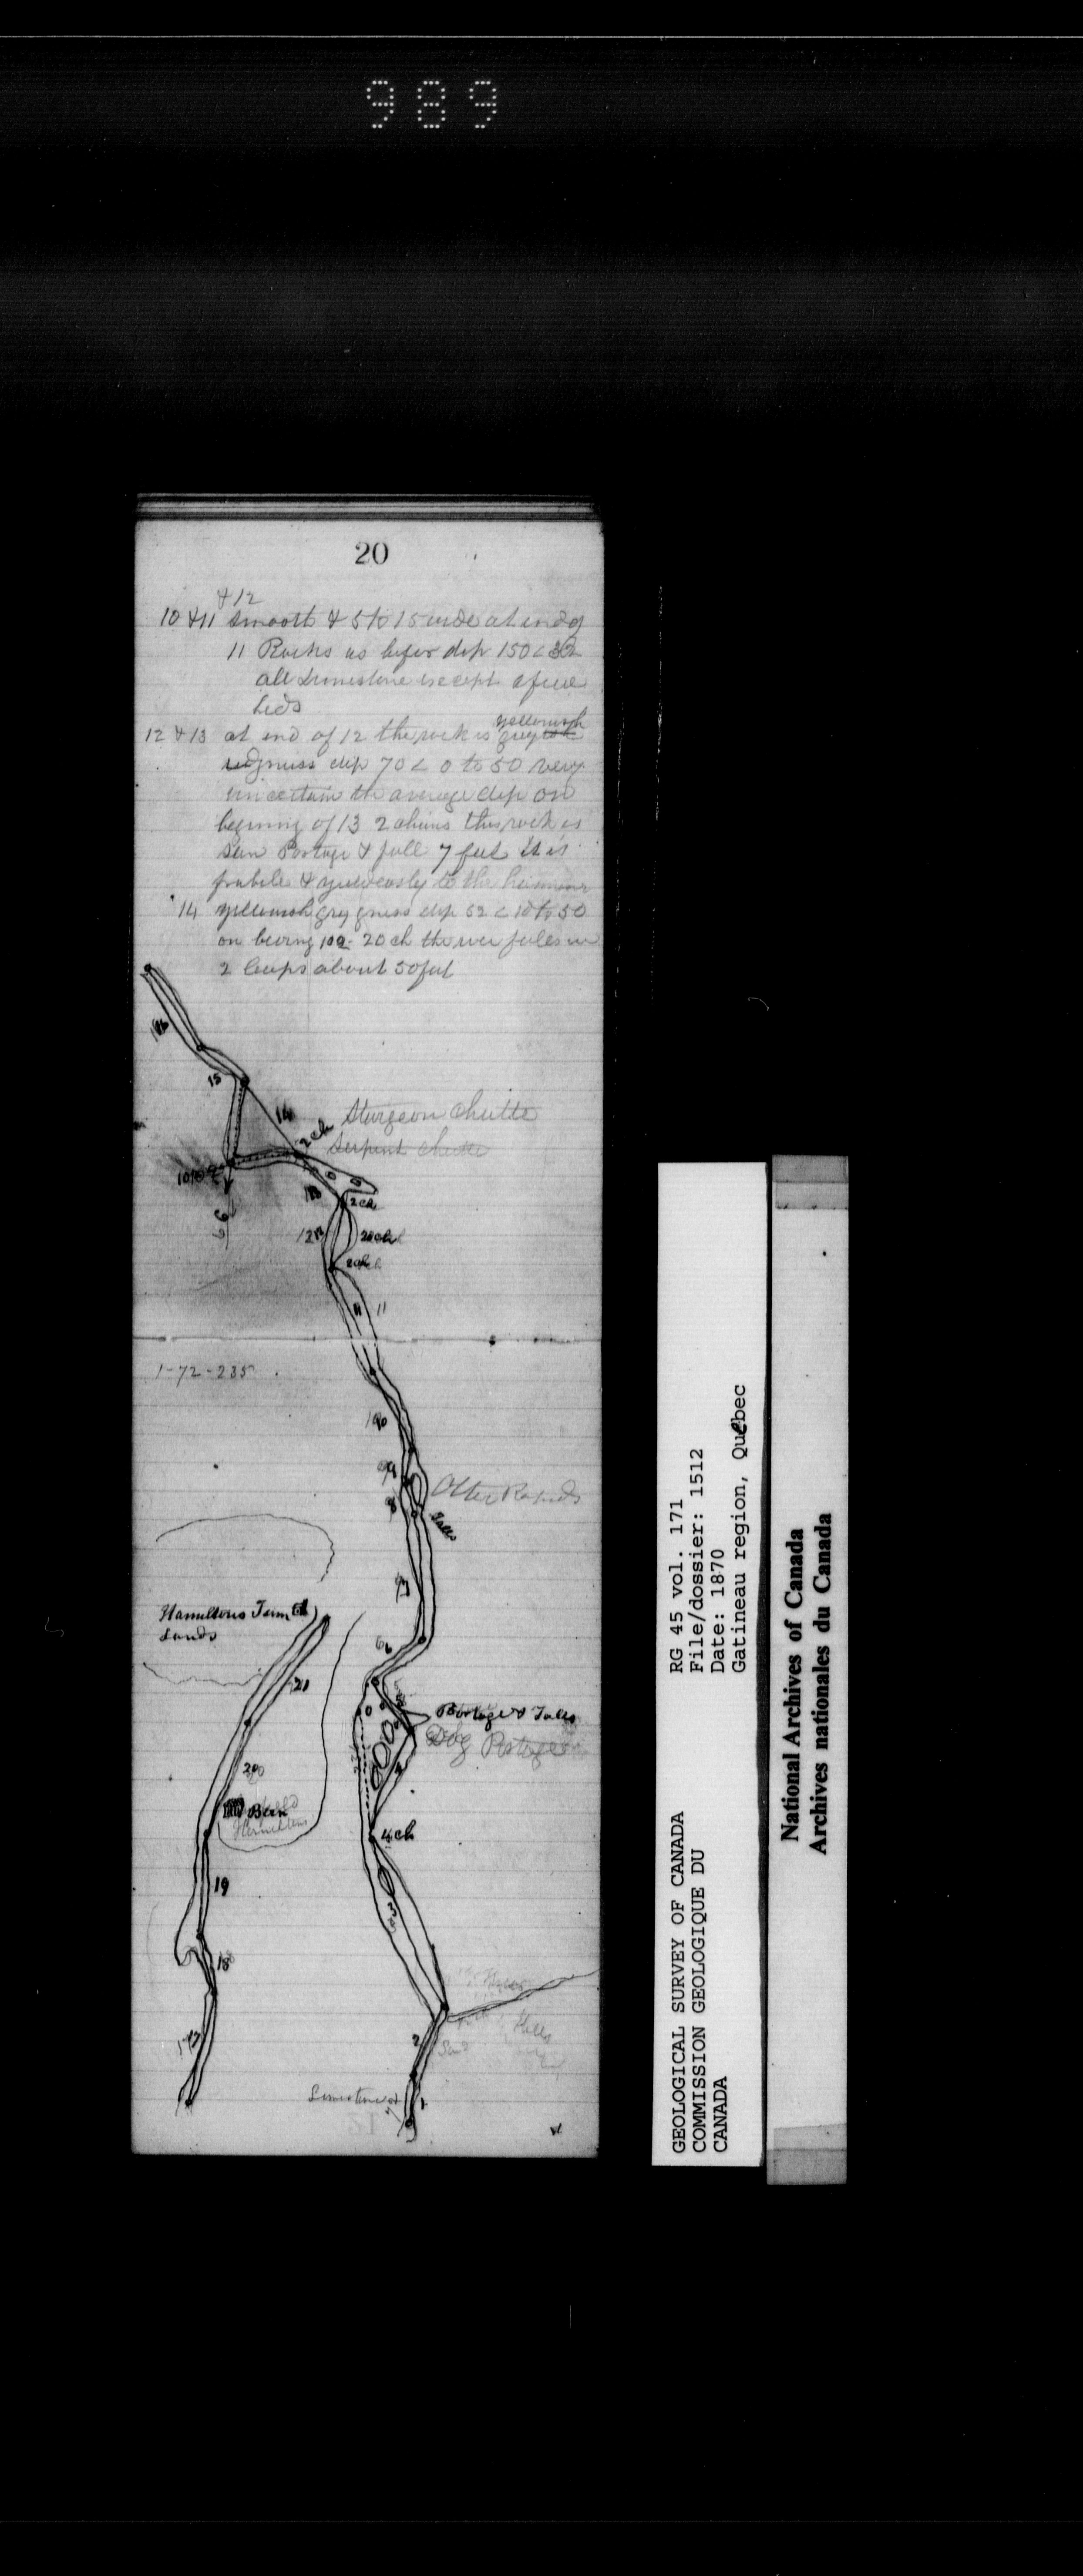 989
20
& 12
10 & 11 smooth & 5 to 15 wide at end of
11 Rocks as befor dip 150 < 32
all Limestone except a few
beds
yellowish
12 & 13 at end of 12 the rock is grey
gniess dip 70 < 0 to 50 very
uncertain the average dip on
begining of 13 2 chains this rock is
seen Portage & fall 7 feet It is
14 yellowish grey gniess dip 52 < 10 to 50
on 20 ch the river falls in
2 leaps about 50 feet
16
15
14
2 ch Sturgeon Chutte
Serpent Chutte
66
13
2 ch
12
2 ch
11 11
1-72-235
10
9
Otter Rapids
8
Falls
7
Hamiltons Farm
Lands
6
21
Portage & Falls
Dog Portage
20
Barn
Hamiltons
4 ch
19
3
18
Hills
17
2
Limestone
1
GEOLOGICAL SURVEY OF CANADA
COMMISSION GEOLOGIQUE DU
CANADA
RG 45 vol. 171
File/dossier: 1512
Date: 1870
Gatineau region, Quebec
National Archives of Canada
Archives nationales du Canada